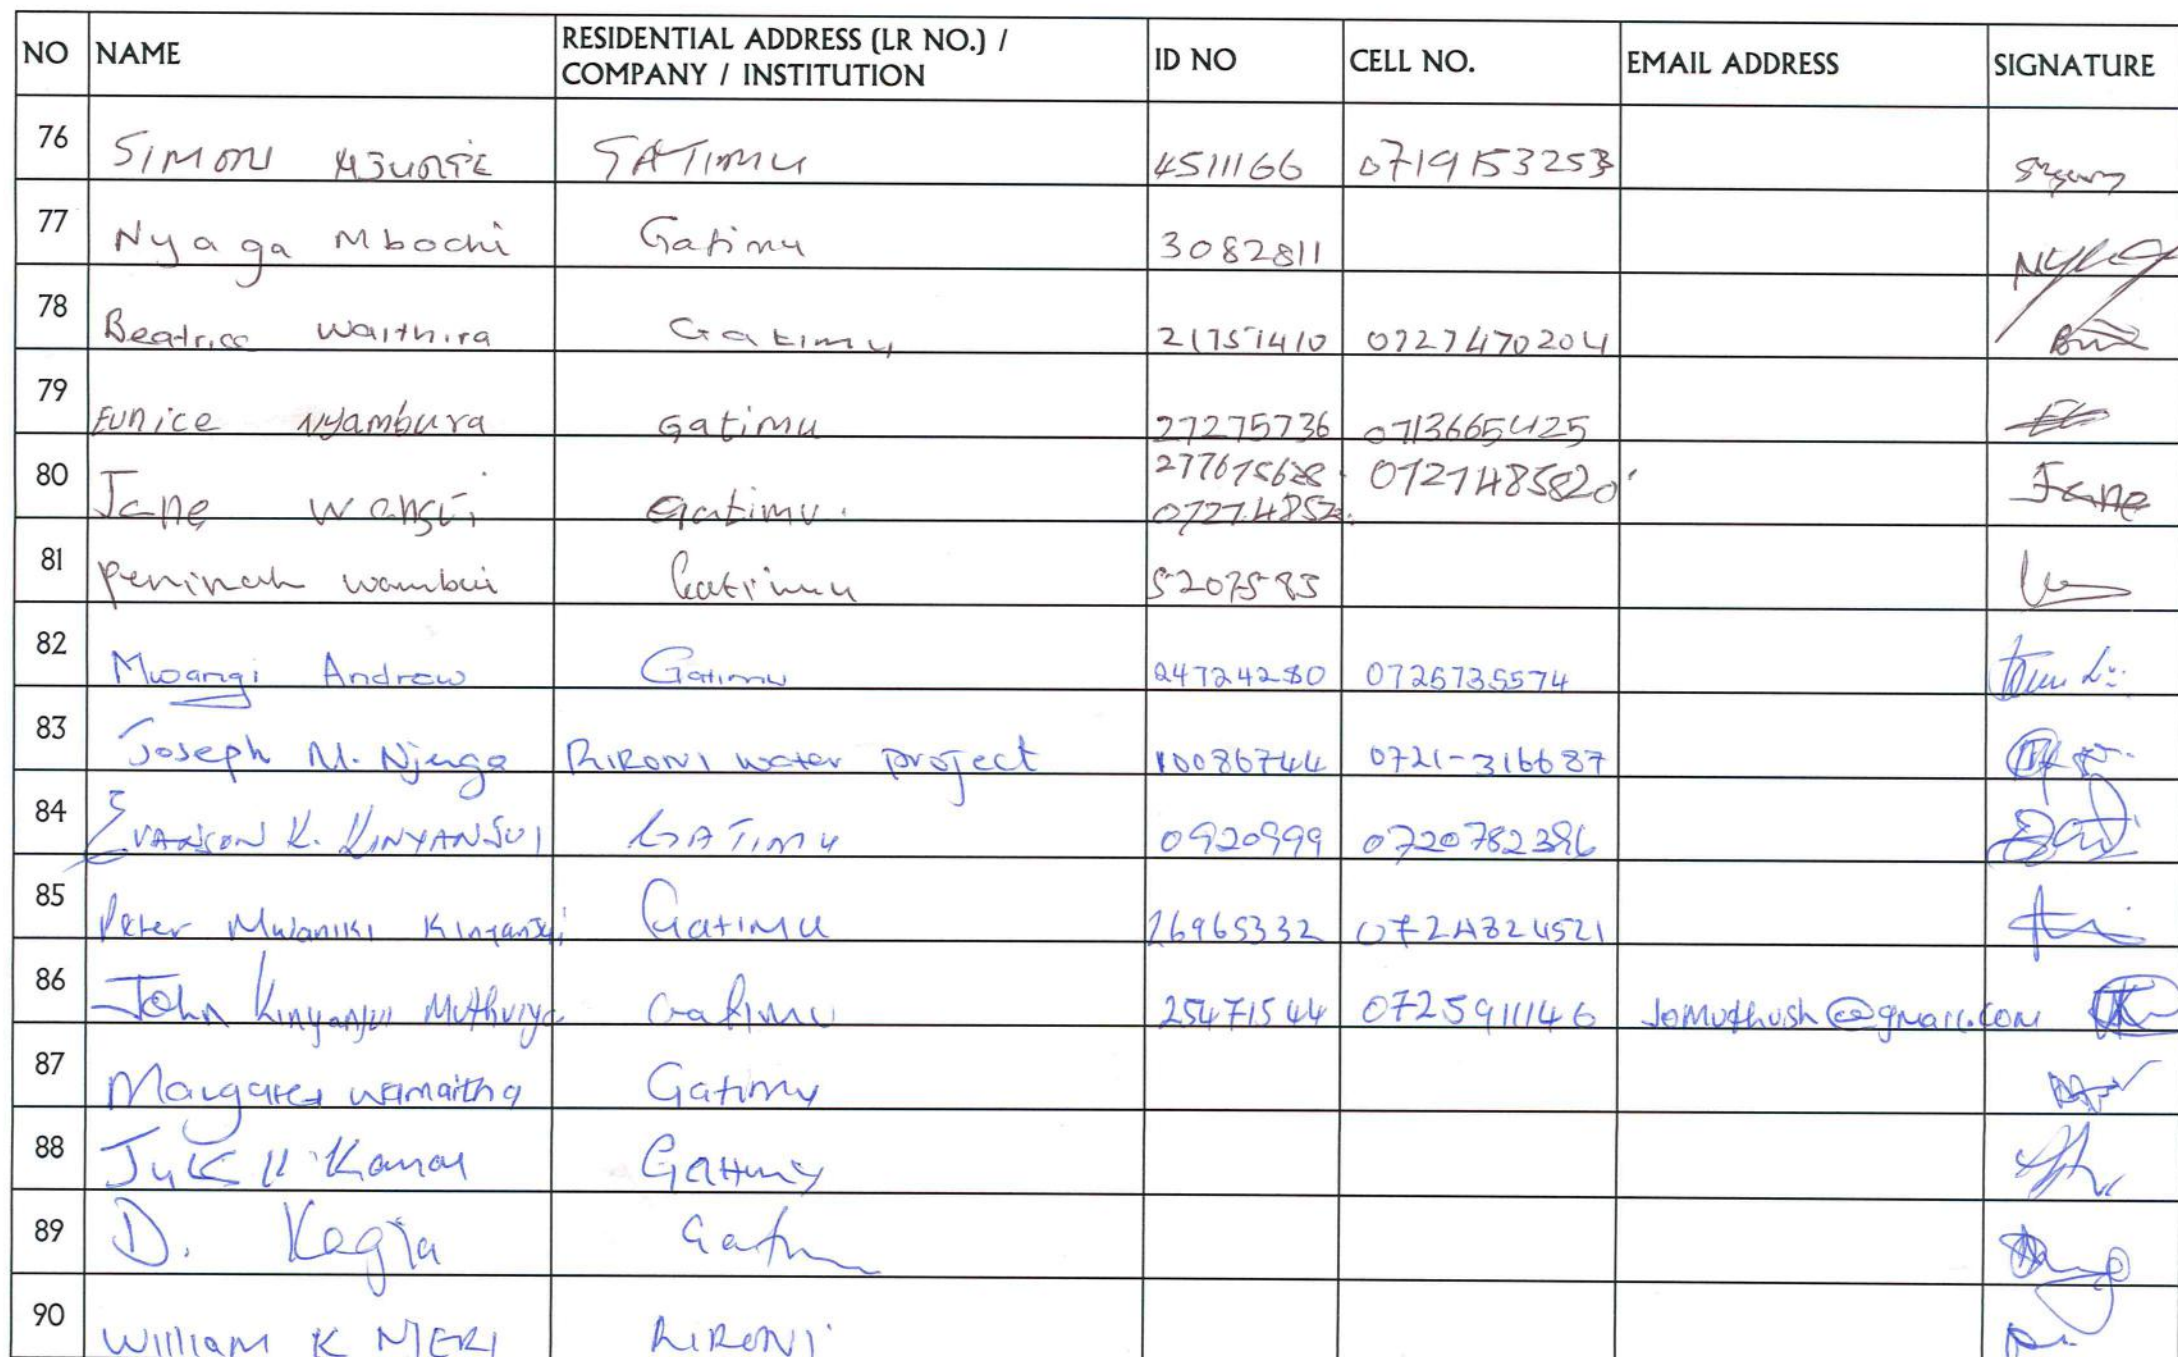 NO NAME RESIDENTIAL ADDRESS (LR NO.) / COMPANY / INSTITUTION ID NO CELL NO. EMAIL ADDRESS SIGNATURE
76 SIMON GATIMU 4511166 0719153253
77 Nyaga Mbochi Gatimu 3082811
78 Beatrice Waithira Gatimu 21751410 0727470204
79 Eunice Nyambura Gatimu 27275736 0713665425
80 Jane Wangui Gatimu. 277675628 0727485820 Jane
07274852
81 Peninah Wambui Gatimu 5207583
82 Mwangi Andrew Gatimu 24724280 0726735574
83 Joseph M. Njenga RIRONI water project 10086744 0721-316687
84 EVANSON K. KINYANJUI GATIMU 0920999 0720782396
85 Peter Mwaniki Kinyanjui Gatimu 26965332 0724324521
86 John Kinyanjui Muthuiya Gatimu 25471544 0725911146 Jomuthush@gmail.com
87 Margaret Wamaitha Gatimu
88 Gatimu
89 D. Kagia Gatimu
90 William K NJERI RIRONI